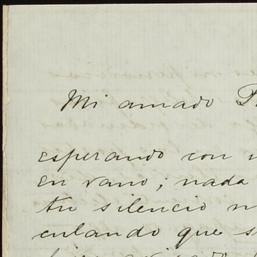 Mi amado
esperando con
en vano; nada
tu silencio
culando que